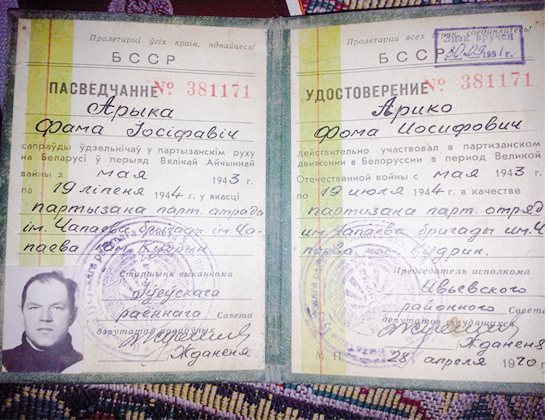 Пралетарыі ўсіх краін, яднайцеся!
БССР
ПАСВЕДЧАННЕ № 381171
Арыка
Фама Іосіфавіч
сапраўды ўдзельнічаў у партызанскім руху
на Беларусі ў перыяд Вялікай Айчыннай
вайны з мая 1943 г.
по 19 ліпеня 1944 г. у якасці
партызана парт. отрада
ім. Чапаева брыгады ім. Ча-
паева
Старшыня выканкома
раённага Савета
дэпутатаў працоўных
Жданеня
Пролетарии всех стран, соединяйтесь!
Знак вручен
БССР
УДОСТОВЕРЕНИЕ № 381171
Арико
Фома Иосифович
действительно участвовал в партизанском
движении в Белоруссии в период Великой
Отечественной войны с мая 1943 г.
по 19 июля 1944 г. в качестве
партизана парт. отряд
им. Чапаева бригады им. Ч
Кудрин.
Председатель исполкома
Ивьевского
районного Совета
депутатов трудящихся
Жданеня
М. П. 28 апреля 1970 г.